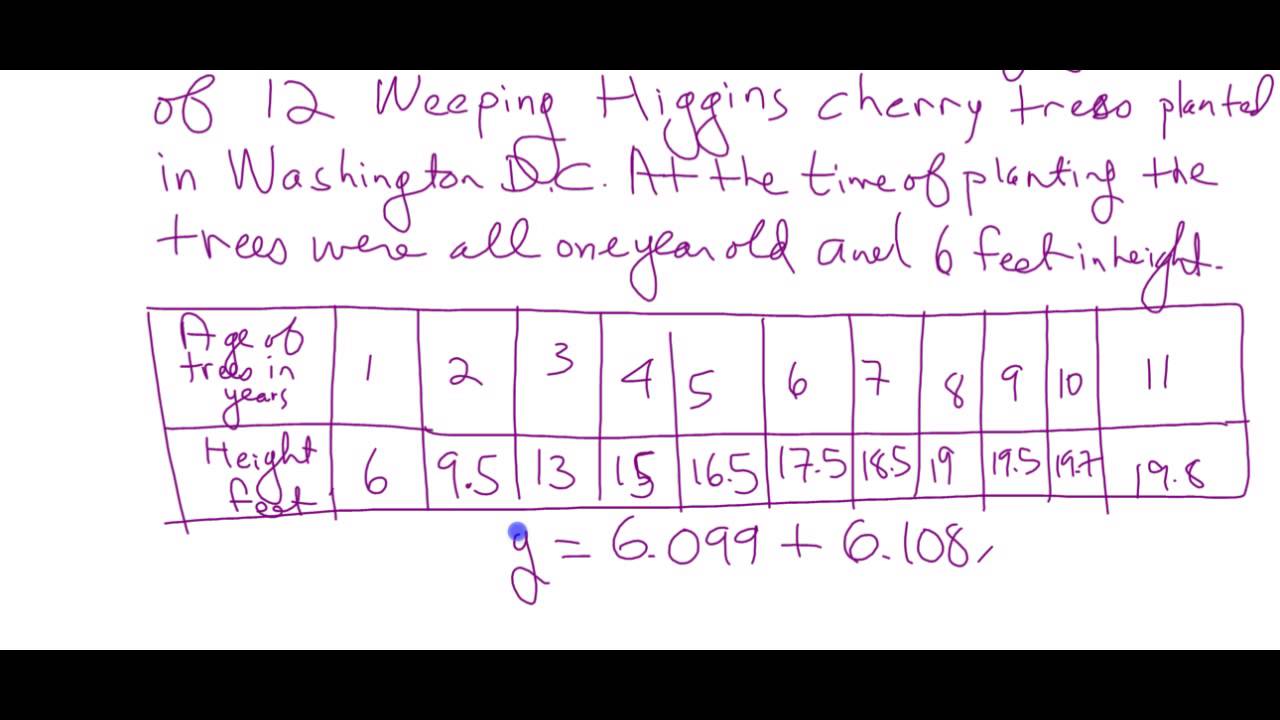 of 12 Weeping Higgins cherry trees planted
in Washington D.C. At the time of planting the
trees were all one year old and 6 feet in height.
Age of trees in years 1 2 3 4 5 6 7 8 9 10 11
Height feet 6 9.5 13 15 16.5 17.5 18.5 19 19.5 19.7 19.8
y = 6.099 + 6.108